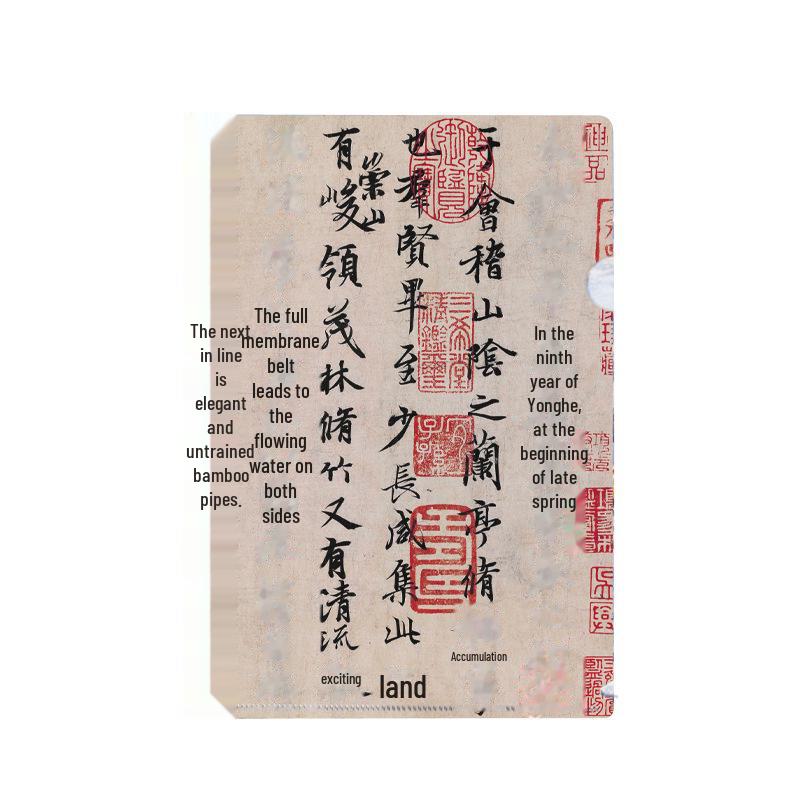 In the
ninth
year of
Yonghe,
at the
beginning
of late
spring
于會稽山陰之蘭亭脩
Accumulation
也羣賢畢至少長咸集此
land
有崇山峻領茂林脩竹又有清流
exciting
The full
membrane
belt
leads to
the
flowing
water on
both
sides
The next
in line
is
elegant
and
untrained
bamboo
pipes.
三希堂
精鑑璽
宜子孫